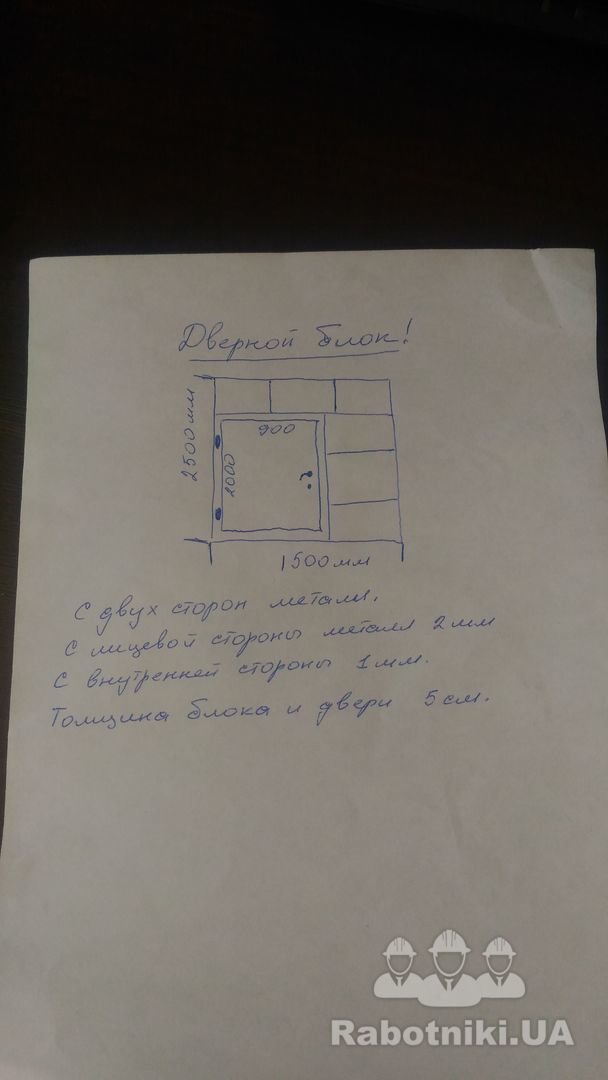 Дверной блок!
2500мм
900
2000
1500мм
С двух сторон металл.
С лицевой стороны металл 2мм
С внутренней стороны 1мм.
Толщина блока и двери 5см.
Rabotniki.UA